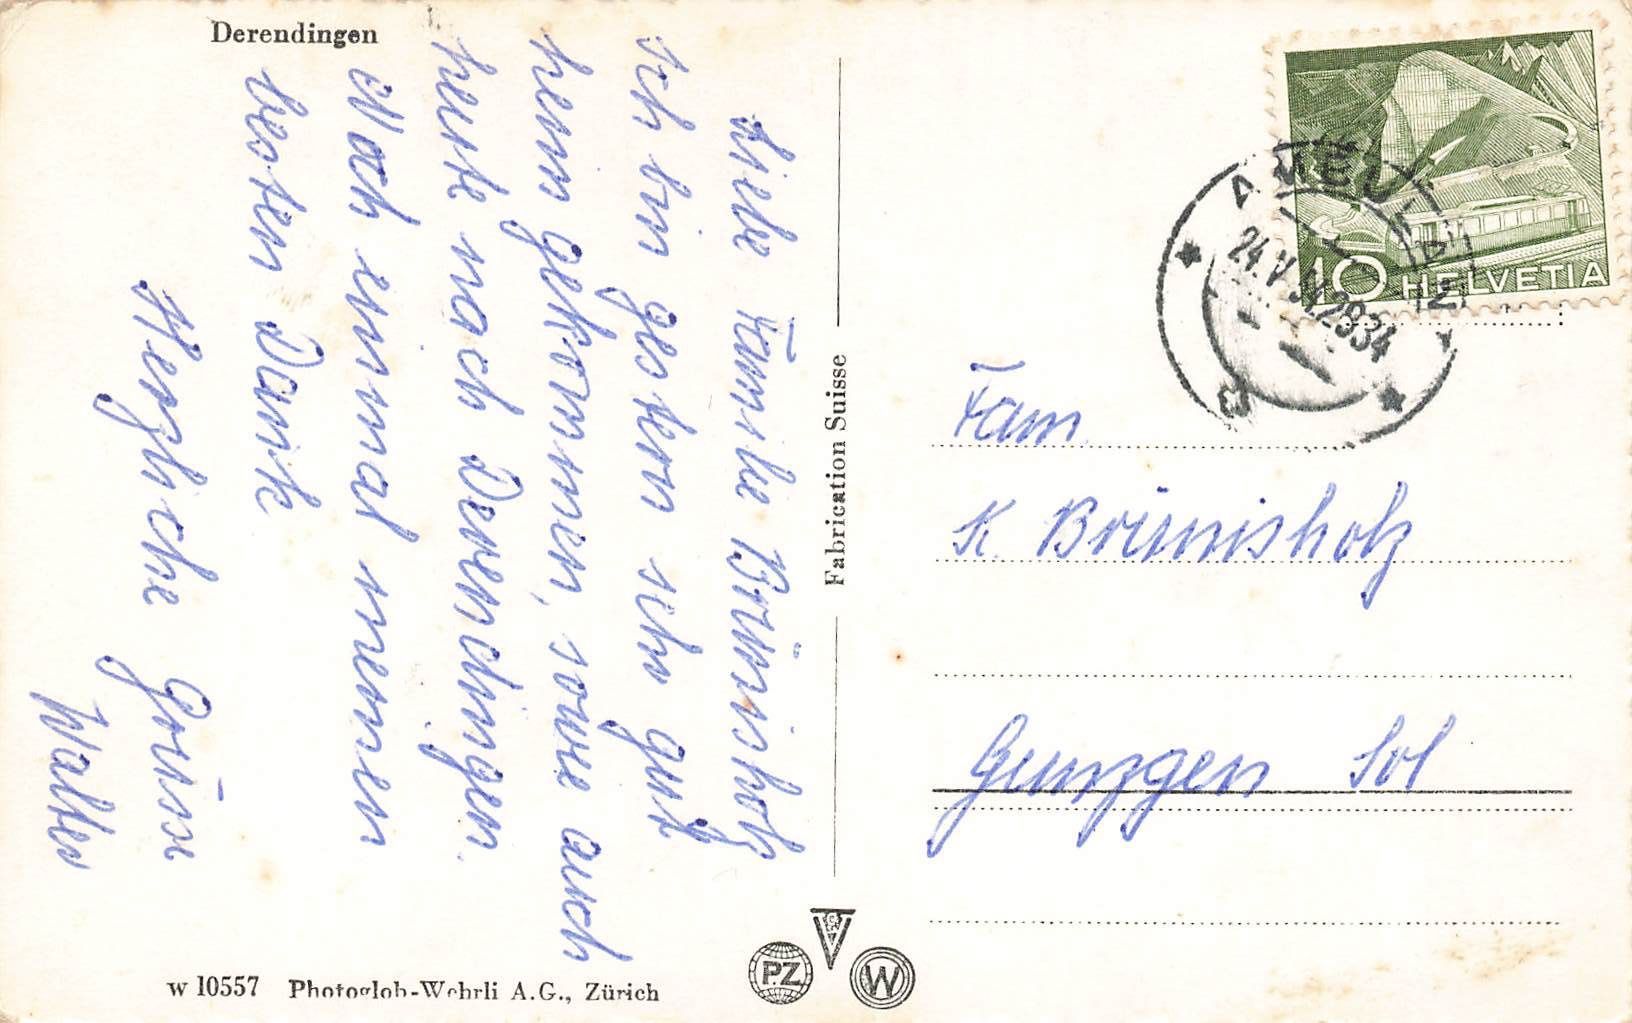 Derendingen
Liebe Familie Brünisholz
Ich bin gestern sehr gut
heim gekommen, sowie auch
heute nach Derendingen.
Noch einmal meinen
besten Dank
Herzliche Grüsse
Walter
W 10557 Photoglob-Wehrli A.G., Zürich
Fabrication Suisse
PZ
W
10 HELVETIA
AMBULANT
24.V.
2934
Fam
K. Brünisholz
Gunzgen Sol